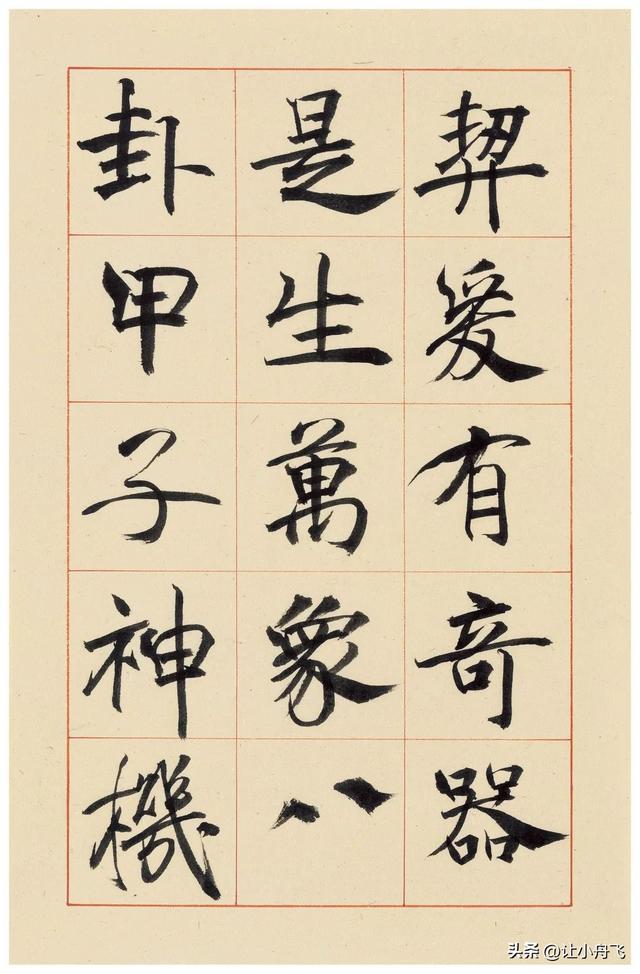 契爰有奇器
是生萬象八
卦甲子神機
头条 @让小舟飞